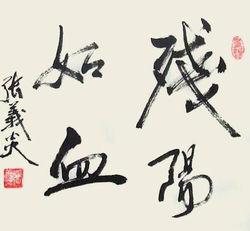 殘陽
如血
張義炎